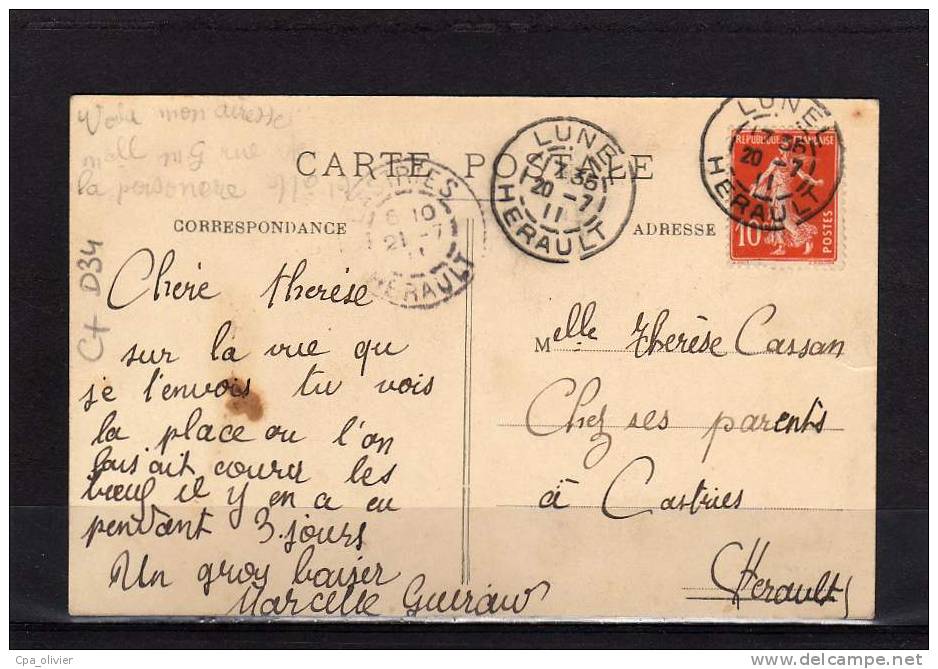 Voila mon adresse
mell mG rue
la poisonerie N°
CARTE POSTALE
CORRESPONDANCE
ADRESSE
LUNEL
17 35
20 -7
11
HERAULT
LUNEL
17 35
20 -7
11
HERAULT
REPUBLIQUE FRANÇAISE
10
POSTES
CASTRIES
6 10
21 -7
11
HERAULT
C+ D34
Chère therèse
sur la vue qu
je t'envois tu vois
la place ou l'on
faisait courir les
bœuf il y en a eu
pendant 3 jours
Un gros baiser
Marcelle Guiraud
Melle Thérèse Cassan
Chez ses parents
à Castries
Herault
Cpa_olivier
www.delcampe.net